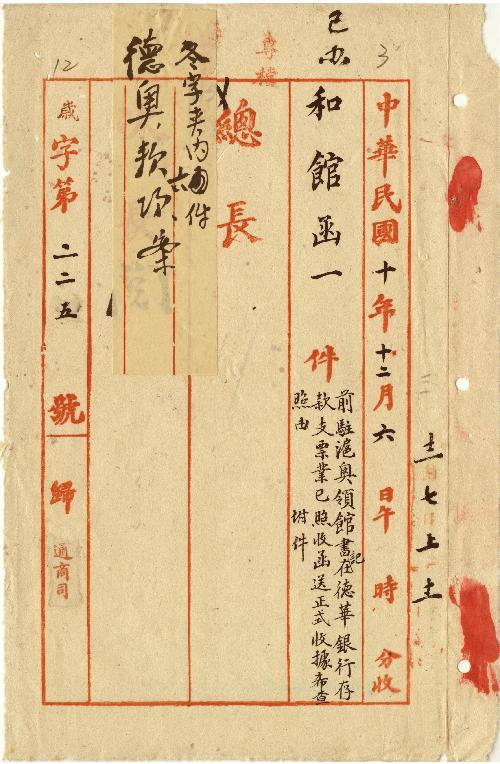 中華民國十年十二月六日午時分收
十二 七 上 十二
3
已办
和館函一件
前駐滬奧領館書記在德華銀行存
款支票業已照收函送正式收據希查
照由
附件
專檔
總長
冬字夾內 件
德奧款項案
12
歲字第二二五號歸通商司